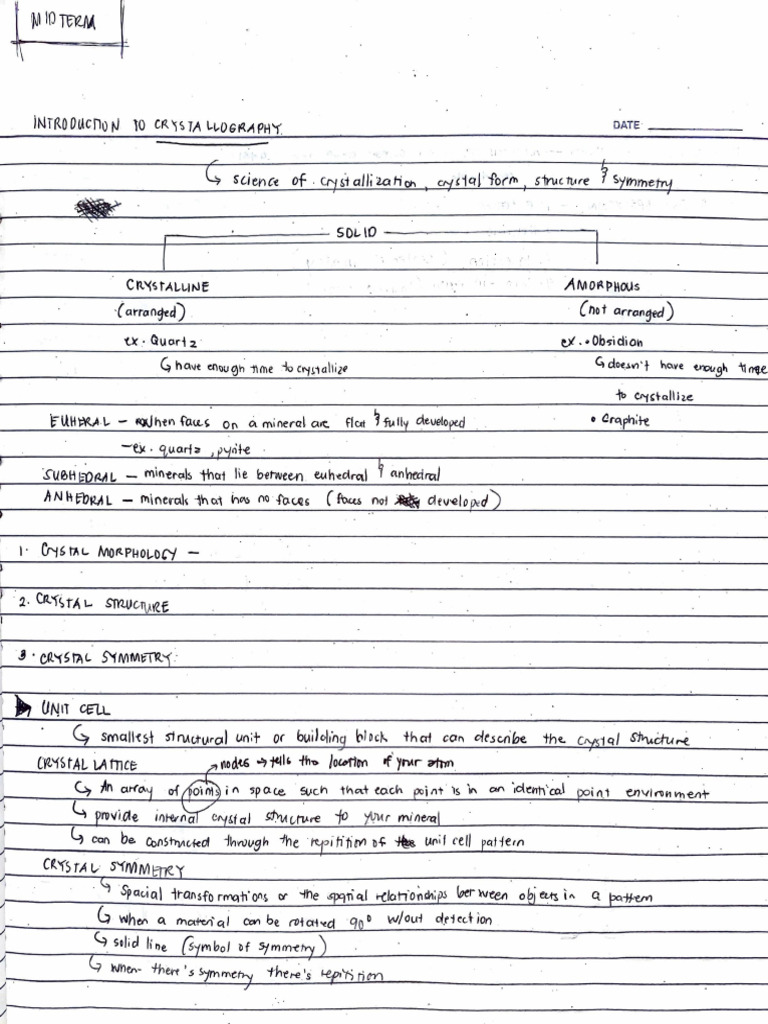 MIDTERM
INTRODUCTION TO CRYSTALLOGRAPHY
DATE
↳ science of crystallization, crystal form, structure & symmetry
SOLID
CRYSTALLINE AMORPHOUS
(arranged) (not arranged)
ex. Quartz ex. • Obsidian
↳ have enough time to crystallize ↳ doesn't have enough time
to crystallize
EUHERAL – When faces on a mineral are flat & fully developed • Graphite
– ex. quartz, pyrite
SUBHEDRAL – minerals that lie between euhedral & anhedral
ANHEDRAL – minerals that has no faces (faces not developed)
1. CRYSTAL MORPHOLOGY –
2. CRYSTAL STRUCTURE
3. CRYSTAL SYMMETRY
UNIT CELL
↳ smallest structural unit or building block that can describe the crystal structure
CRYSTAL LATTICE nodes → tells the location of your atom
↳ An array of points in space such that each point is in an identical point environment
↳ provide internal crystal structure to your mineral
↳ can be constructed through the repitition of the unit cell pattern
CRYSTAL SYMMETRY
↳ spacial transformations or the spatial relationships between objects in a pattern
↳ when a material can be rotated 90° w/out detection
↳ solid line (symbol of symmetry)
↳ when there's symmetry there's repitition